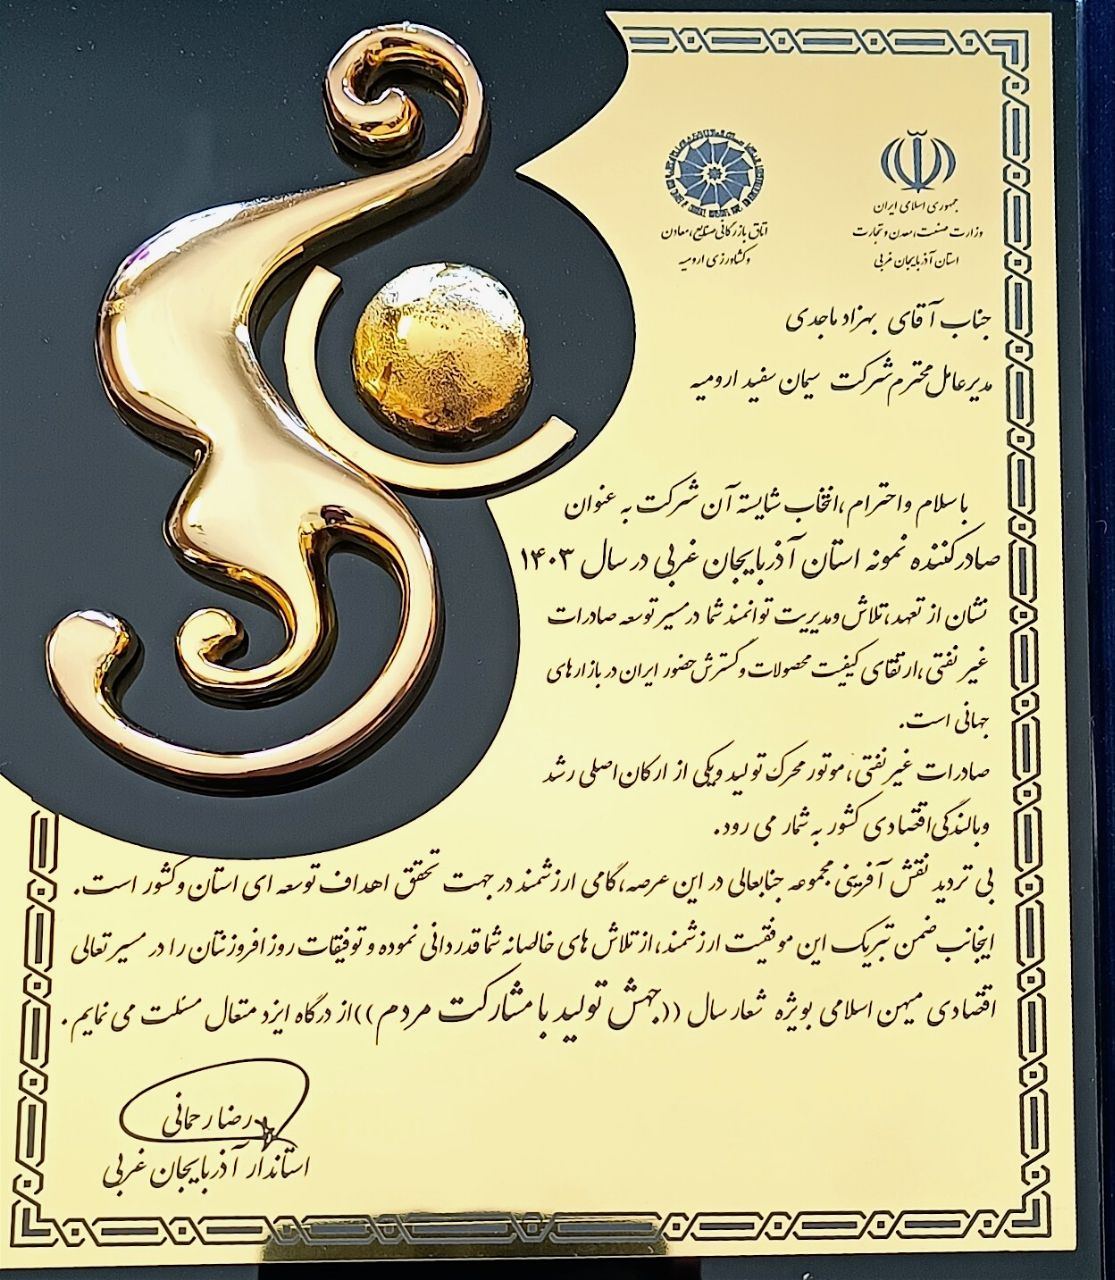 جمهوری اسلامی ایران
وزارت صنعت، معدن و تجارت
استان آذربایجان غربی
اتاق بازرگانی صنایع، معادن
و کشاورزی ارومیه
جناب آقای بهزاد ماجدی
مدیرعامل محترم شرکت سیمان سفید ارومیه
با سلام و احترام، انتخاب شایسته آن شرکت به عنوان
صادرکننده نمونه استان آذربایجان غربی در سال ۱۴۰۳
نشان از تعهد، تلاش و مدیریت توانمند شما در مسیر توسعه صادرات
غیر نفتی، ارتقای کیفیت محصولات و گسترش حضور ایران در بازارهای
جهانی است.
صادرات غیر نفتی، موتور محرک تولید و یکی از ارکان اصلی رشد
و بالندگی اقتصادی کشور به شمار می رود.
بی تردید نقش آفرینی مجموعه جنابعالی در این عرصه، گامی ارزشمند در جهت تحقق اهداف توسعه ای استان و کشور است.
اینجانب ضمن تبریک این موفقیت ارزشمند، از تلاش های خالصانه شما قدردانی نموده و توفیقات روز افزونتان را در مسیر تعالی
اقتصادی میهن اسلامی بویژه شعار سال ((جهش تولید با مشارکت مردم)) از درگاه ایزد متعال مسئلت می نمایم.
رضا رحمانی
استاندار آذربایجان غربی